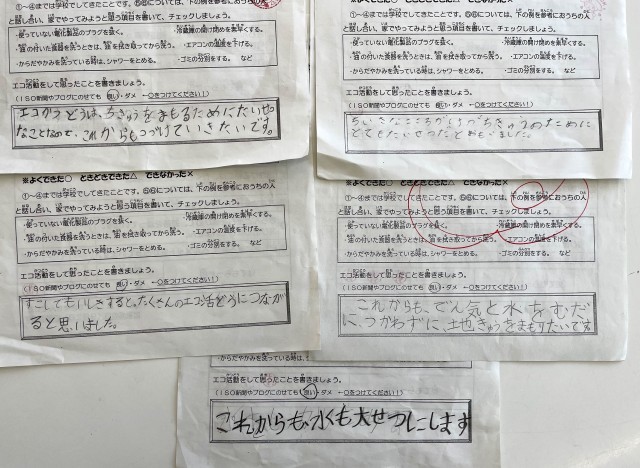 ①～④までは学校でしてきたことです。⑤⑥については、下の例を参考におうちの人
と話し合い、家でやってみようと思う項目を書いて、チェックしましょう。
・使っていない電化製品のプラグを抜く。 ・冷蔵庫の開け閉めを素早くする。
・油の付いた食器を洗うときは、油を拭き取ってから洗う。 ・エアコンの温度を下げる。
・からだやかみを洗っている時は、シャワーをとめる。 ・ゴミの分別をする。 など
エコ活動をして思ったことを書きましょう。
(ISO新聞やブログにのせても 良い・ダメ ←○をつけてください！)
エコかつどうは、ちきゅうをまもるためにたいせつ
なことなので、これからもつづけていきたいです。
①～④までは学校でしてきたことです。⑤⑥については、下の例を参考におうちの人
と話し合い、家でやってみようと思う項目を書いて、チェックしましょう。
・使っていない電化製品のプラグを抜く。 ・冷蔵庫の開け閉めを素早くする。
・油の付いた食器を洗うときは、油を拭き取ってから洗う。 ・エアコンの温度を下げる。
・からだやかみを洗っている時は、シャワーをとめる。 ・ゴミの分別をする。 など
エコ活動をして思ったことを書きましょう。
(ISO新聞やブログにのせても 良い・ダメ ←○をつけてください！)
ちいさなこころがけがちきゅうのために
とてもたいせつだとおもいました。
※よくできた○ ときどきできた△ できなかった×
①～④までは学校でしてきたことです。⑤⑥については、下の例を参考におうちの人
と話し合い、家でやってみようと思う項目を書いて、チェックしましょう。
・使っていない電化製品のプラグを抜く。 ・冷蔵庫の開け閉めを素早くする。
・油の付いた食器を洗うときは、油を拭き取ってから洗う。 ・エアコンの温度を下げる。
・からだやかみを洗っている時は、シャワーをとめる。 ・ゴミの分別をする。 など
エコ活動をして思ったことを書きましょう。
(ISO新聞やブログにのせても 良い・ダメ ←○をつけてください！)
すこしでもいしきすると、たくさんのエコ活どうにつなが
ると思いました。
※よくできた○ ときどきできた△ できなかった×
①～④までは学校でしてきたことです。⑤⑥については、下の例を参考におうちの人
と話し合い、家でやってみようと思う項目を書いて、チェックしましょう。
・使っていない電化製品のプラグを抜く。 ・冷蔵庫の開け閉めを素早くする。
・油の付いた食器を洗うときは、油を拭き取ってから洗う。 ・エアコンの温度を下げる。
・からだやかみを洗っている時は、シャワーをとめる。 ・ゴミの分別をする。 など
エコ活動をして思ったことを書きましょう。
(ISO新聞やブログにのせても 良い・ダメ ←○をつけてください！)
これからも、でん気と水をむだ
に、つかわずに、土地きゅうをまもりたいです
・からだやかみを洗っている時は、
エコ活動をして思ったことを書きましょう。
(ISO新聞やブログにのせても 良い・ダメ ←○をつけてください！)
これからも、水も大せつにします